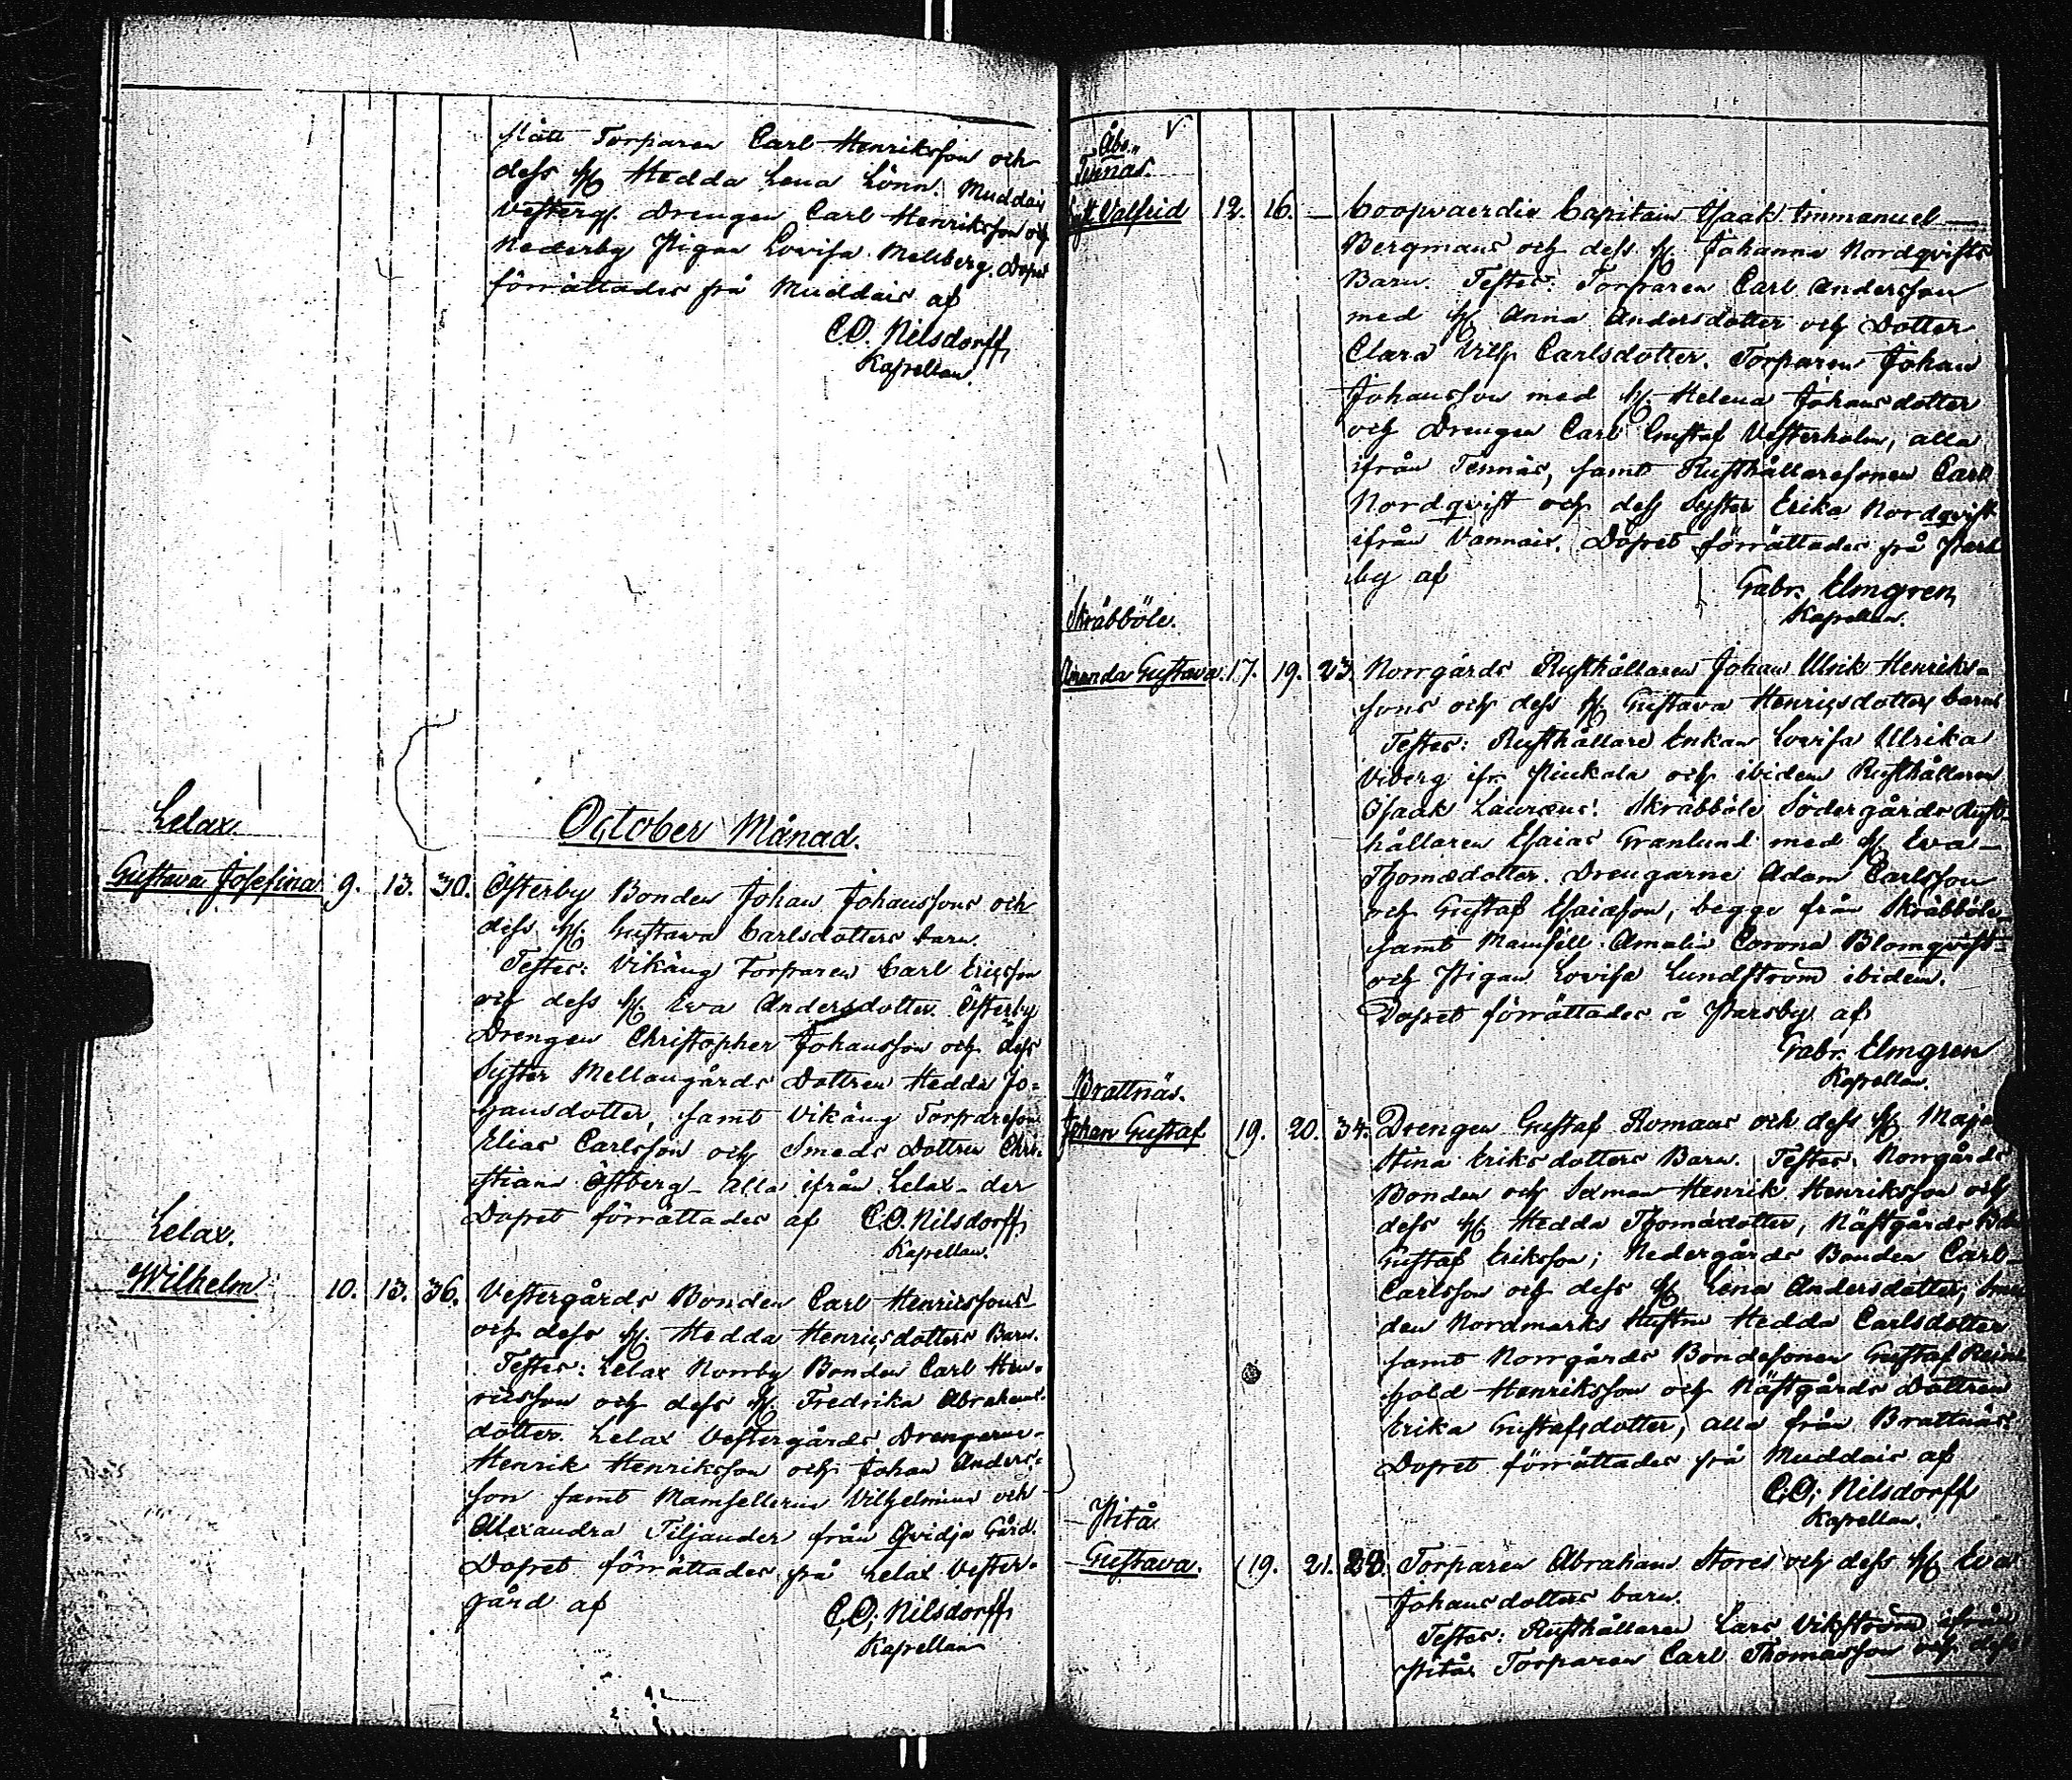 slätt Torparen Carl Henriksson och
dess H. Hedda Lena Lönn. Muddais
Vesterg. Drengen Carl Henriksson och
Nederby Pigan Lovisa Mellberg. Dopet
förrättades på Muddais af
C.O. Nilsdorff,
Kapellan.
October Månad.
Lelax.
Gustava Josefina 9. 13. 30. Österby Bonden Johan Johanssons och
dess H. Gustava Carlsdotters barn.
Testes: Vikäng Torparen Carl Ericsson
och dess H. Eva Andersdotter. Österby
Drengen Christopher Johansson och dess
Syster Mellangårds Dottren Hedda Jo=
hansdotter, samt Vikäng Torparesson
Elias Carlsson och Smeds Dottren Chri-
stiana Östberg - alla ifrån Lelax - der
Dopet förrättades af C.O. Nilsdorff,
Kapellan.
Lelax.
Wilhelm 10. 13. 36. Vestergårds Bonden Carl Henricssons
och dess H. Hedda Henricsdotters Barn.
Testes: Lelax Norrby Bonden Carl Hen-
ricsson och dess H. Fredrika Abrahams-
dotter. Lelax Vestergårds Drengarne
Henrik Henriksson och Johan Anders-
son samt Mamsellerna Vilhelmina och
Alexandra Tiljander från Qvidja Gård.
Dopet förrättades på Lelax Vester-
gård af C.O. Nilsdorff,
Kapellan
Åbo
Tennäs.
Valfrid 12. 16. — Coopvaerdie Capitain Isaak Immanuel
Bergmans och dess H. Johanna Nordqvists
Barn. Testes: Torparen Carl Andersson
med H. Anna Andersdotter och Dotter
Clara Vilh. Carlsdotter. Torparen Johan
Johansson med H. Helena Johansdotter
och Drengen Carl Gustaf Vesterholm, alla
ifrån Tennäs, samt Rusthållaresonen Carl
Nordqvist och dess Syster Erika Nordqvist
ifrån Vannais. Dopet förrättades på Pars
by af Gabr. Elmgren,
Kapellan.
Skräbböle.
Amanda Gustava. 17. 19. 23. Norrgårds Rusthållaren Johan Ulrik Henriks-
sons och dess H. Gustava Henricsdotters barn
Testes: Rusthållare Enkan Lovisa Ulrika
Viberg ifr. och ibidem Rusthållaren
Isaak Laurens! Skräbböle Södergårds Rust-
hållaren Esaias Granlund med H. Eva
Thomædotter. Drengarne Adam Carlsson
och Gustaf Esaiæson, begge från Skräbböle
samt Mamsell Amalia Corona Blomqvist
och Pigan Lovisa Lundström ibidem.
Dopet förrättades i Parsby af
Gabr. Elmgren
Kapellan.
Brattnäs.
Johan Gustaf 19. 20. 34. Drengen Gustaf Romans och dess H. Maja
Stina Eriksdotters Barn. Testes: Norrgårds
Bonden och Sexman Henrik Henriksson och
dess H. Hedda Thomædotter, Nästgårds
Gustaf Eriksson; Nedergårds Bonden Carl
Carlsson och dess H. Lena Andersdotter, Sme
den Nordmarks Hustru Hedda Carlsdotter
samt Norrgårds Bondesonen Gustaf Rein
hold Henriksson och Nästgårds Dottren
Erika Gustafsdotter, alla från Brattnäs.
Dopet förrättades på Muddais af
C.O. Nilsdorff
Kapellan.
Gustava. 19. 21. 28. Torparen Abraham Stores och dess H. Eva
Johansdotters barn.
Testes: Rusthållaren Lars Vikström ifrån
Torparen Carl Thomasson och dess